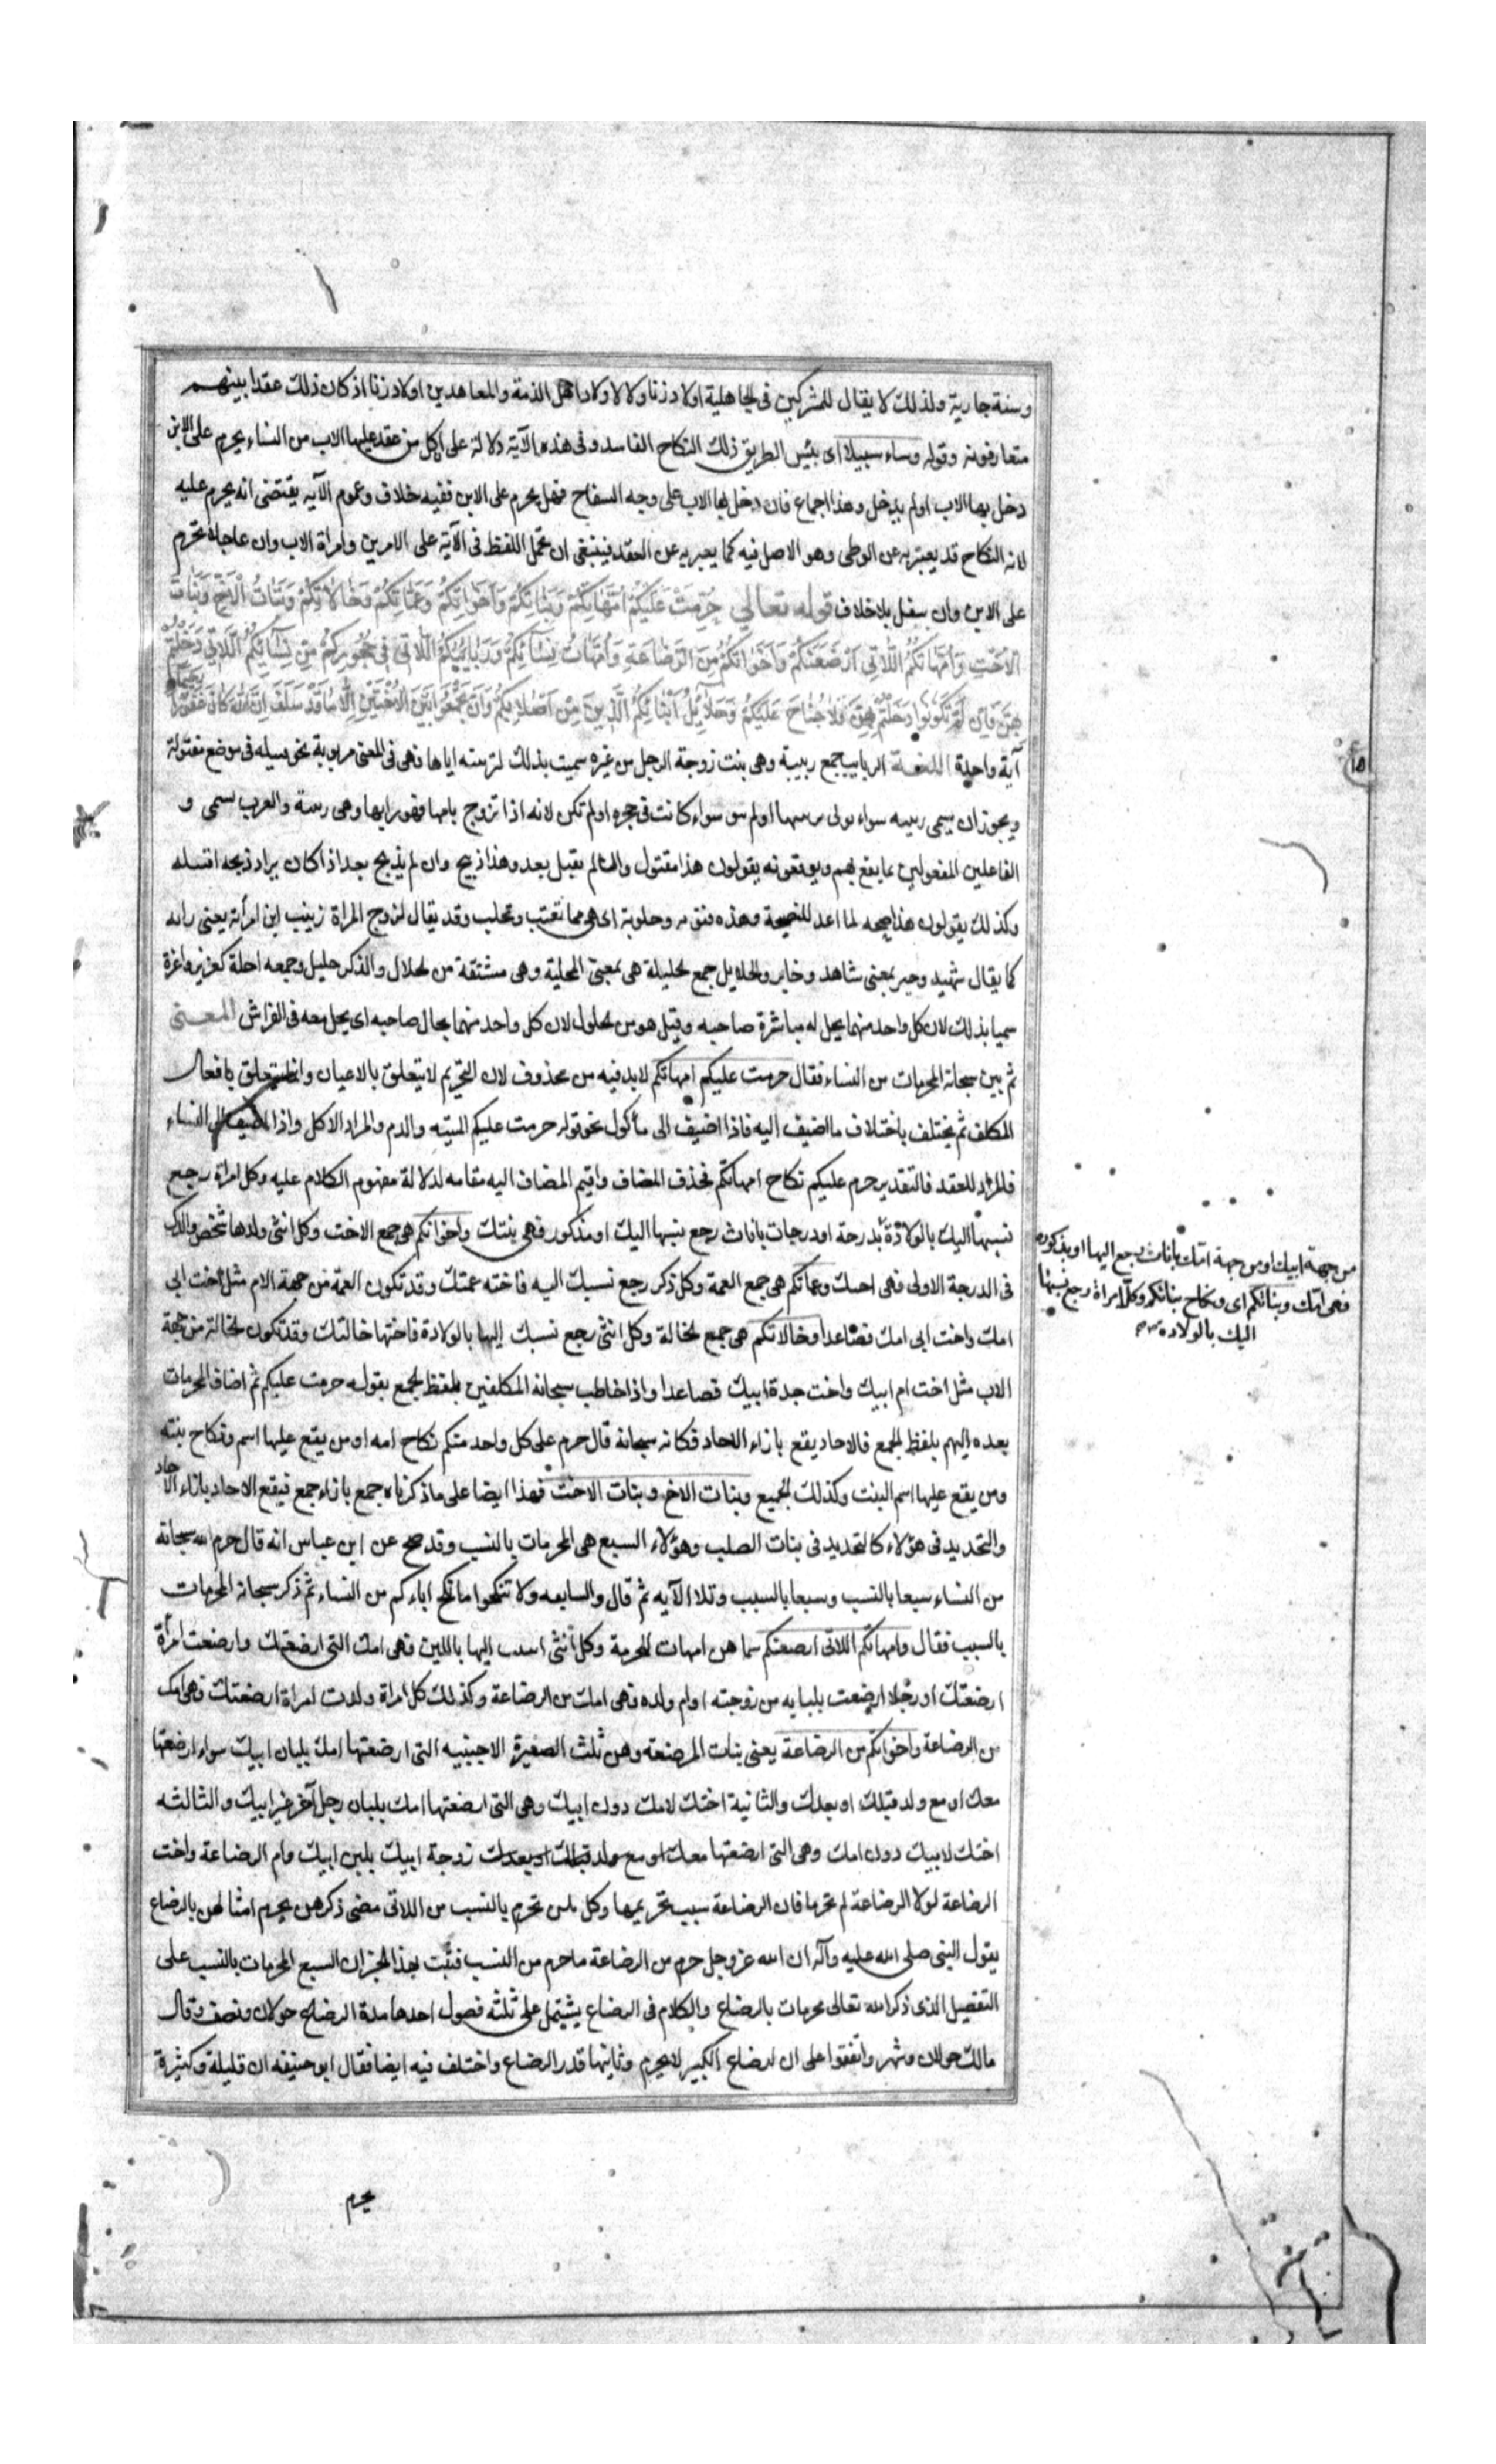 وسنة جارية ولذلك لا يقال للمشركين فى الجاهلية اولاد زنا ولا لاولاد اهل الذمة والمعاهدين اولاد زنا اذ كان ذلك عقدا بينهم
متعارفونه وقوله وساء سبيلا اى بئس الطريق ذلك النكاح الفاسد وفى هذه الآية دلالة على كل من عقد عليها الاب من النساء يحرم على الابن
دخل بها الاب او لم يدخل وهذا اجماع فان دخل بها الاب على وجه السفاح فهل يحرم على الابن ففيه خلاف وعموم الآيه يقتضى انه يحرم عليه
لانه النكاح قد يعبر به عن الوطى وهو الاصل فيه كما يعبر به عن العقد فينبغى ان تحمل اللفظ فى الآية على الامرين وامراة الاب وان علا تحرم
على الابن وان سفل بلا خلاف قوله تعالي حُرِّمَتْ عَلَيْكُمْ اُمَّهَاتُكُمْ وَبَنَاتُكُمْ وَاَخَوَاتُكُمْ وَعَمَّاتُكُمْ وَخَالَاتُكُمْ وَبَنَاتُ الْاَخِ وَبَنَاتُ
الْاُخْتِ وَاُمَّهَاتُكُمُ اللَّاتِى اَرْضَعْنَكُمْ وَاَخَوَاتُكُمْ مِنَ الرَّضَاعَةِ وَاُمَّهَاتُ نِسَائِكُمْ وَرَبَائِبُكُمُ اللَّاتِى فِى حُجُورِكُمْ مِنْ نِسَائِكُمُ اللَّاتِى دَخَلْتُمْ
بِهِنَّ فَاِنْ لَمْ تَكُونُوا دَخَلْتُمْ بِهِنَّ فَلَا جُنَاحَ عَلَيْكُمْ وَحَلَائِلُ اَبْنَائِكُمُ الَّذِينَ مِنْ اَصْلَابِكُمْ وَاَنْ تَجْمَعُوا بَيْنَ الْاُخْتَيْنِ اِلَّا مَا قَدْ سَلَفَ اِنَّ اللهَ كَانَ غَفُورًا رحيما
آية واحدة اللغة الربايب جمع ربيبة وهى بنت زوجة الرجل من غيره سميت بذلك لتربيته اياها فهى فى المعنى مربوبة نحو فى موضع مقتولة
ويجوز ان يسمى ربيبه سواء تولى او لم سواء كانت فى حجره او لم تكن لانه اذا تزوج بامها فهو رابها وهى والعرب يسمى و
الفاعلين المفعولين بما يقع بهم ويوقعونه يقولون هذا مقتول وان لم يقتل بعد وهذا ذبيح وان لم يذبح بعد اذا كان يراد ذبحه
وكذلك يقولون هذا لما اعد وهذه وحلوبة اى هى مما تقتب وتحلب وقد يقال لزوج المراة زينب ابن امرأته يعنى رابه
كما يقال شهيد وخبير بمعنى شاهد وخابر والحلايل جمع الحليلة هى بمعنى المحللة وهى مشتقة من الحلال والذكر حليل وجمعه احلة كعزيز واعزة
سميا بذلك لان كل واحد منهما يحل له مباشرة صاحبه وقيل هو من الحلول لان كل واحد منهما يحال صاحبه اى يحل معه فى الفراش المعنى
ثم بين سبحانه المحرمات من النساء فقال حرمت عليكم امهاتكم لا بد فيه من محذوف لان التحريم لا يتعلق بالاعيان وانما يتعلق بافعال
المكلف ثم يختلف باختلاف ما اضيف اليه فاذا اضيف الى مأكول نحو قوله حرمت عليكم الميته والدم والمراد الاكل واذا اضيف الى النساء
فالمراد العقد فالتقدير حرم عليكم نكاح امهاتكم فحذف المضاف واقيم المضاف اليه مقامه لدلالة مفهوم الكلام عليه وكل امراة رجع
نسبها اليك بالولادة بدرجة او درجات باناث رجع نسبها اليك او مذكور فهى بنتك واخواتكم هى جمع الاخت وكل انثى ولدها شخص ولدك
فى الدرجة الاولى فهى اختك وعماتكم هى جمع العمة وكل ذكر رجع نسبك اليه فاخته عمتك وقد تكون العمة من جهة الام مثل اخت ابى
امك واخت ابى امك فصاعدا وخالاتكم هى جمع الخالة وكل انثى رجع نسبك اليها بالولادة فاختها خالتك وقد تكون الخالة من جهة
الاب مثل اخت ام ابيك واخت جدة ابيك فصاعدا واذا خاطب سبحانه المكلفين بلفظ الجمع بقوله حرمت عليكم ثم اضاف المحرمات
بعده اليهم بلفظ الجمع فالاحاد يقع بازاء الاحاد فكانه سبحانه قال حرم على كل واحد منكم نكاح امه او من يقع عليها اسم ونكاح بنته
ومن يقع عليها اسم البنت وكذلك الجميع وبنات الاخ وبنات الاخت فهذا ايضا على ما ذكرناه جمع بازاء جمع فيقع الاحاد بازاء الاحاد
والتحديد فى هؤلاء كالتحديد فى بنات الصلب وهؤلاء السبع هى المحرمات بالنسب وقد صح عن ابن عباس انه قال حرم الله سبحانه
من النساء سبعا بالنسب وسبعا بالسبب وتلا الآيه ثم قال والسابعه ولا تنكحوا ما نكح اباءكم من النساء ثم ذكر سبحانه المحرمات
بالسبب فقال وامهاتكم اللاتى ارضعنكم سماهن امهات للحرمة وكل انثى اليها باللبن فهى امك التى ارضعتك وارضعت امرأة
ارضعتك او رجلا ارضعت بلبانه من زوجته او ام ولده فهى امك من الرضاعة وكذلك كل امراة ولدت امراة ارضعتك فهى امك
من الرضاعة واخواتكم من الرضاعة يعنى بنات المرضعه وهن ثلث الصغيرة الاجنبيه التى ارضعتها امك بلبان ابيك سواء ارضعتها
معك او مع ولد قبلك او بعدك والثانية اختك لامك دون ابيك وهى التى ارضعتها امك بلبان رجل آخر غير ابيك والثالثه
اختك لابيك دون امك وهى التى ارضعتها معك او مع ولد قبلك او بعدك زوجة ابيك بلبن ابيك وام الرضاعة واخت
الرضاعة لولا الرضاعة لم تحرما فان الرضاعة سبب تحريمها وكل من تحرم بالنسب من اللاتى مضى ذكرهن يحرم امثالهن بالرضاع
يقول النبى صلى الله عليه وآله ان الله عز وجل حرم من الرضاعة ما حرم من النسب فثبت بهذا الخبر ان السبع المحرمات بالنسب على
التفصيل الذى ذكر الله تعالى محرمات بالرضاع والكلام فى الرضاع يشتمل على ثلثه فصول احدها مدة الرضاع حولان ونصف وقال
مالك حولان وشهر واتفقوا على ان لرضاع الكبير لا يحرم وثانيها قدر الرضاع واختلف فيه ايضا فقال ابو حنيفه ان قليلة وكثيرة
من جهة ابيك او من جهة امك باناث رجع اليها او بذكور
فهى امك وبناتكم اى ونكاح بناتكم وكل امراة رجع نسبها
اليك بالولادة
يحرم